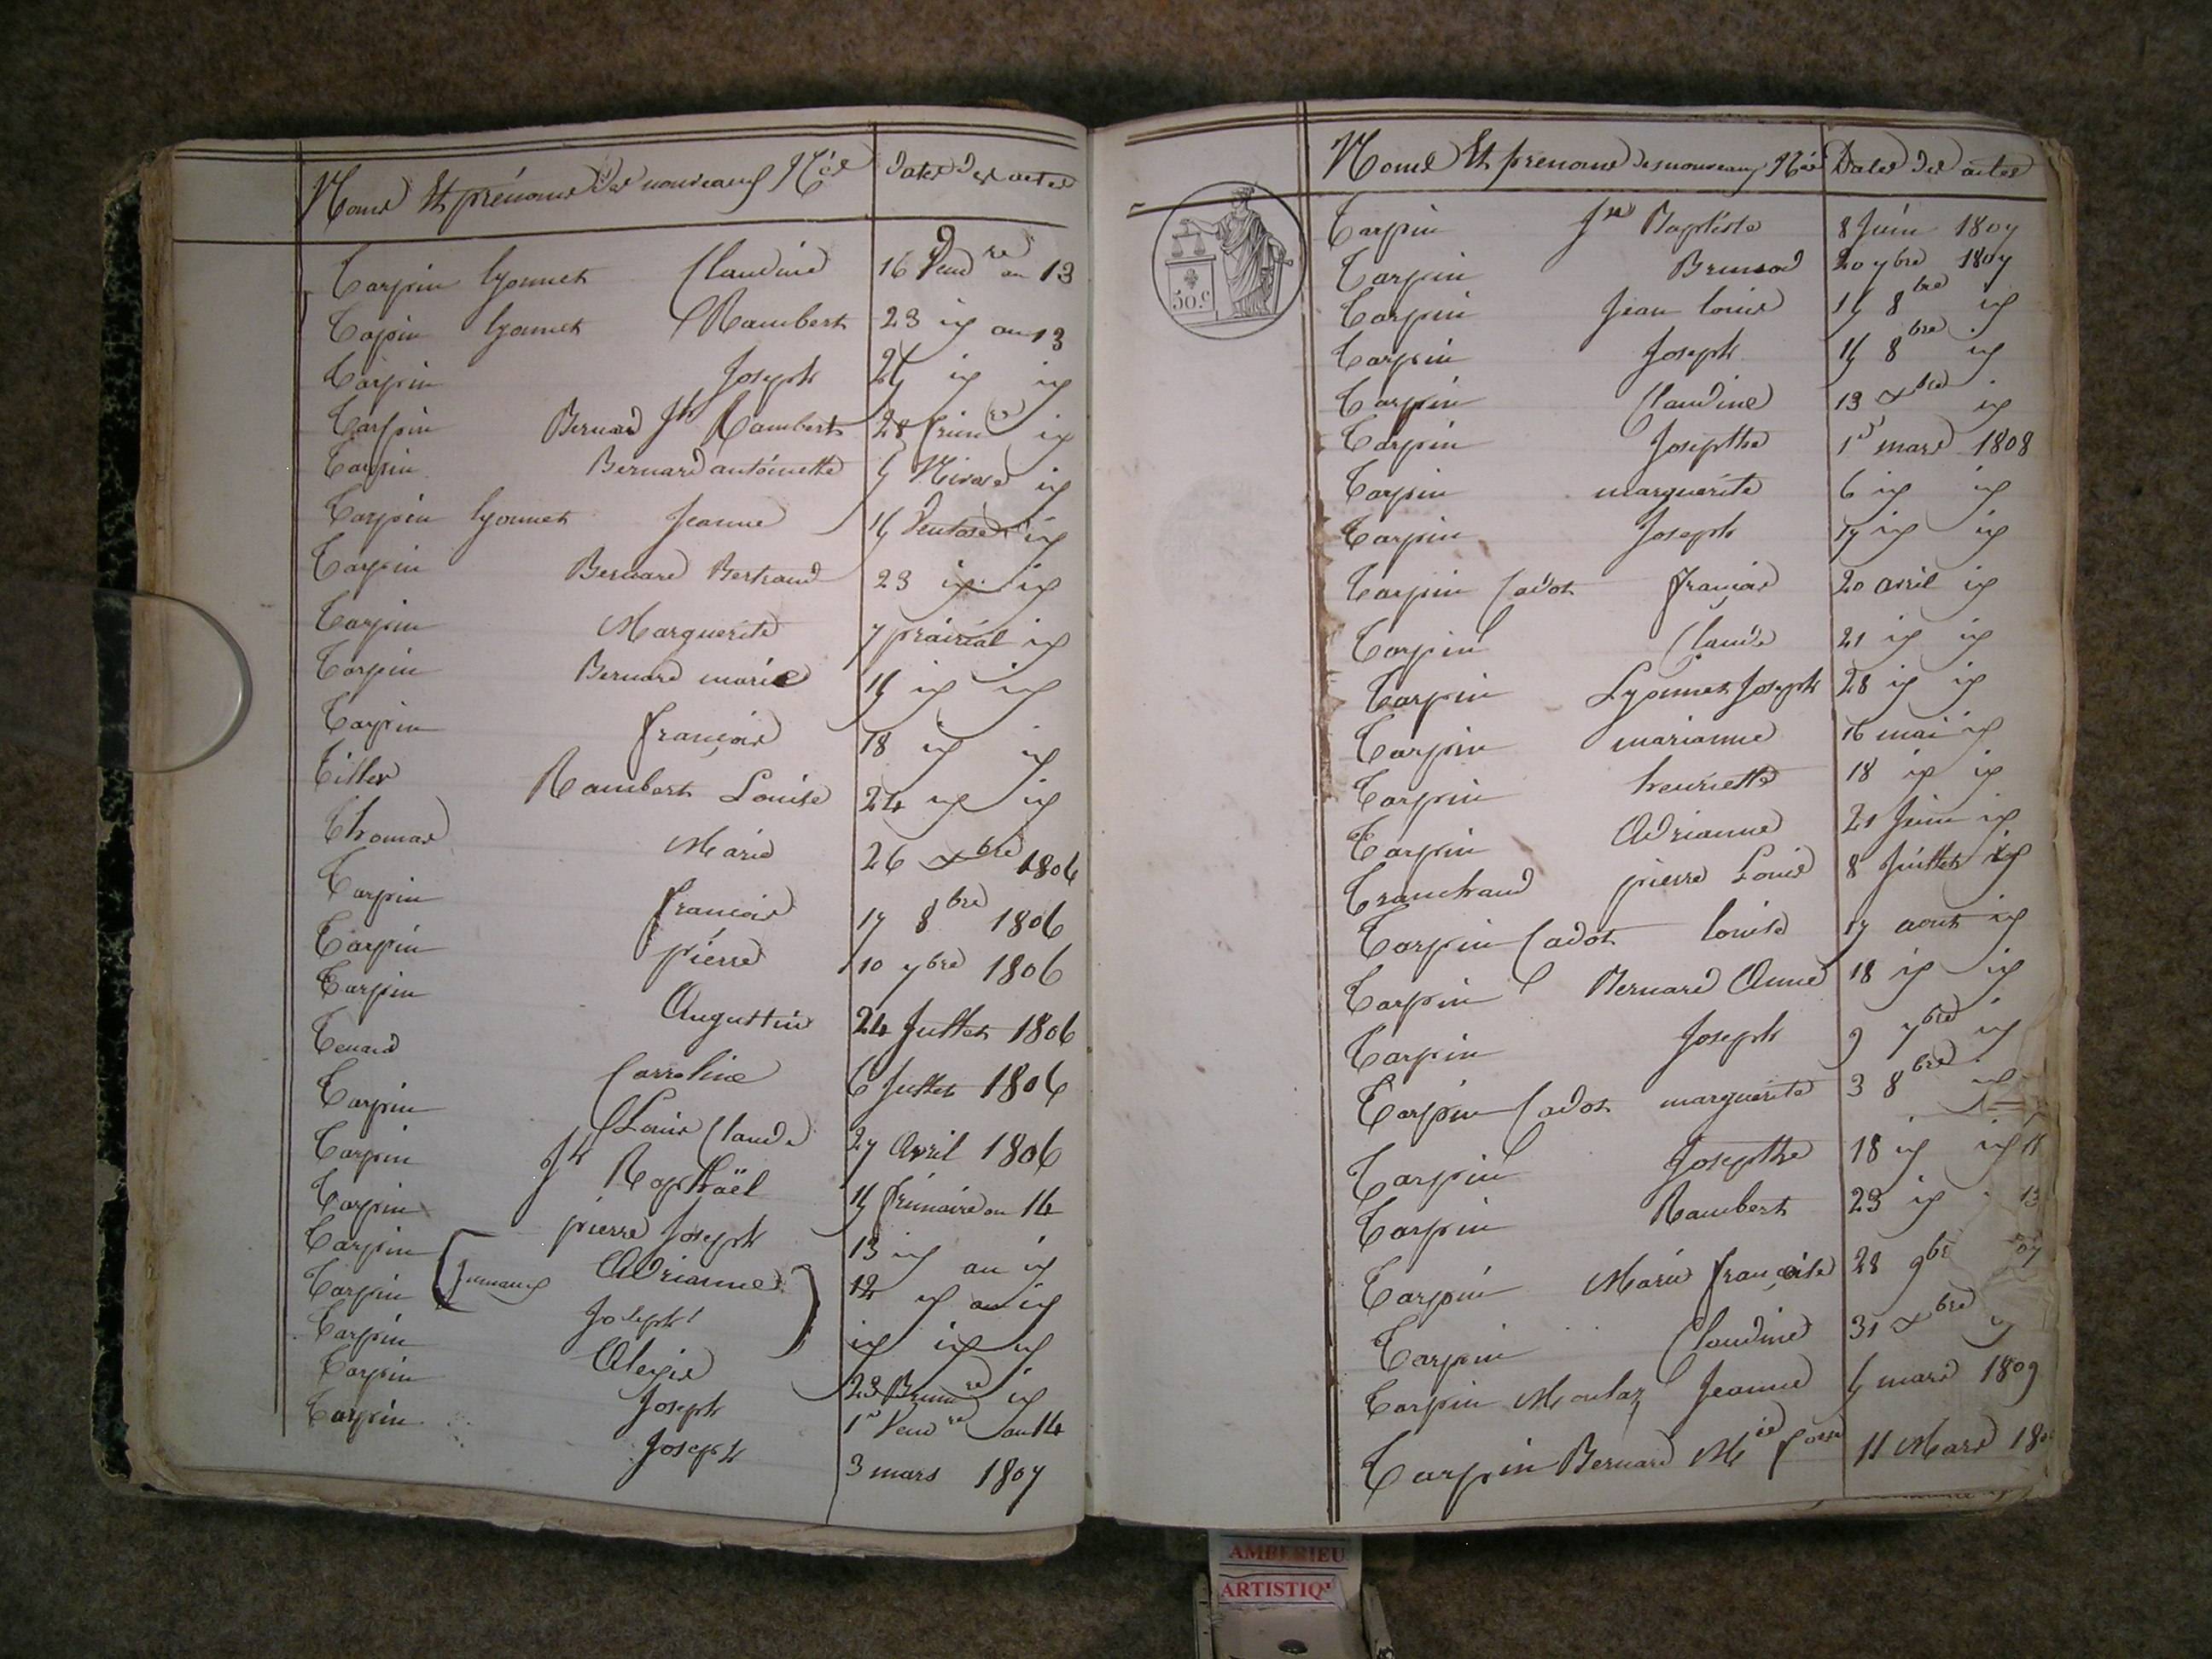 Noms et prénoms des nouveaux Nés Dates des actes
Tarpin lyonnet Claudine 16 Vend re an 13
Tarpin lyonnet Rambert 23 id an 13
Tarpin Joseph id id
Tarpin Bernard Jh Rambert 28 frim re id
Tarpin Bernard antoinette Nivose id
Tarpin lyonnet Jeanne Ventose id
Tarpin Bernard Bertrand 23 id id
Tarpin Marguerite 7 prairial id
Tarpin Bernard marie id id
Tarpin françois 18 id id
Tiller Rambert Louise 24 id id
Thomas Marie 26 xbre 1806
Tarpin françois 17 8bre 1806
Tarpin pierre 10 7bre 1806
Tarpin Augustin 24 Juillet 1806
Tenard Carroline 6 Juillet 1806
Tarpin Louis Claude 27 Avril 1806
Tarpin Jh Raphaël frimaire an 14
Tarpin pierre Joseph 13 id an id
Tarpin Jumeaux Adrianne 12 id an id
Tarpin Joseph id id id
Tarpin Alexis 23 Brum re id
Tarpin Joseph 1er Vend re an 14
Tarpin Joseph 3 mars 1807
Noms et prenoms des nouveaux Nés Dates des actes
50 c
Tarpin Jn Baptiste 8 Juin 1807
Tarpin 20 7bre 1807
Tarpin Jean louis 8bre id
Tarpin Joseph 8bre id
Tarpin Claudine 13 xbre id
Tarpin Josephte 1er mars 1808
Tarpin marguerite 6 id id
Tarpin Joseph 17 id id
Tarpin Cadot françois 20 avril id
Tarpin Claude 21 id id
Tarpin Lyonnet Joseph 28 id id
Tarpin marianne 16 mai id
Tarpin henriette 18 id id
Tarpin Adrianne 21 Juin id
Tranchand pierre Louis 8 Juillet id
Tarpin Cadot louise 17 aout id
Tarpin Bernard Anne 18 id id
Tarpin Joseph 9 7bre id
Tarpin Cadot marguerite 3 8bre id
Tarpin Josephte 18 id id
Tarpin Rambert 23 id
Tarpin Marie françoise 28 9bre
Tarpin Claudine 31 xbre
Tarpin Moulaz Jeanne mars 1809
Tarpin Bernard Mie 11 Mars
AMBERIEU
ARTISTIQ